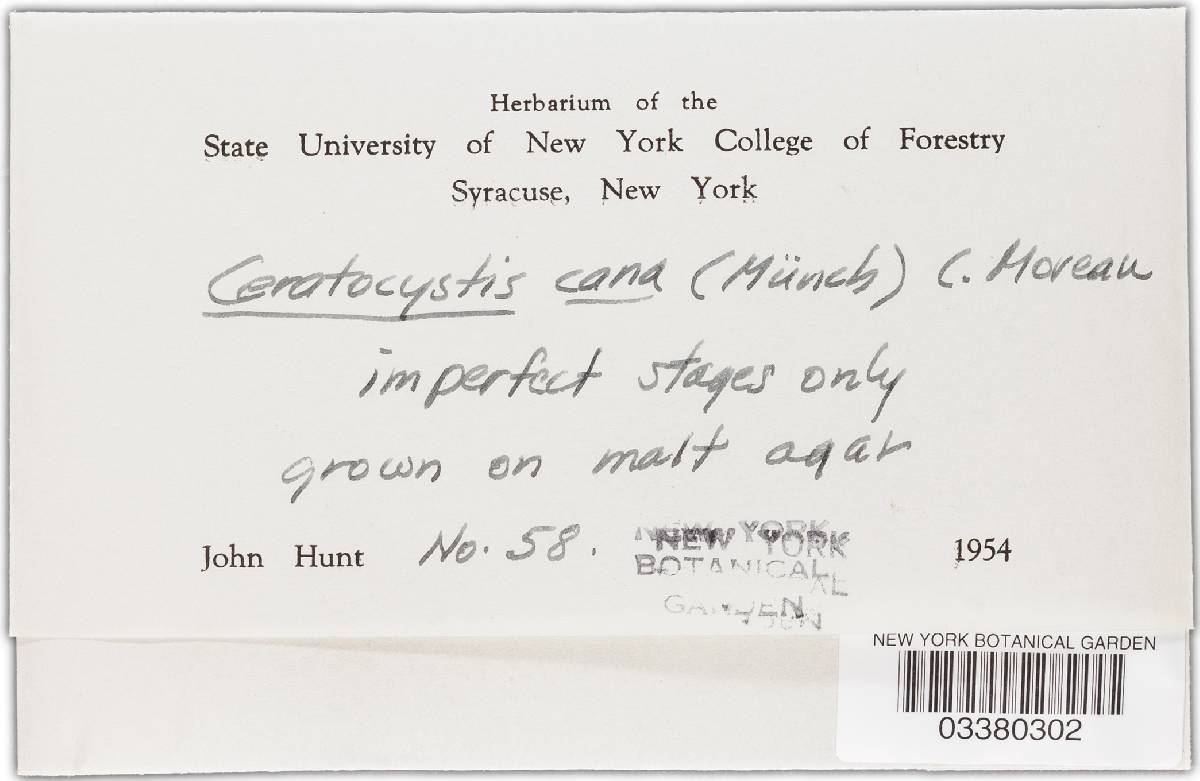 Herbarium of the
State University of New York College of Forestry
Syracuse, New York
Ceratocystis cana (Münch) C. Moreau
imperfect stages only
grown on malt agar
John Hunt No. 58. 1954
NEW YORK
BOTANICAL
GARDEN
NEW YORK BOTANICAL GARDEN
03380302